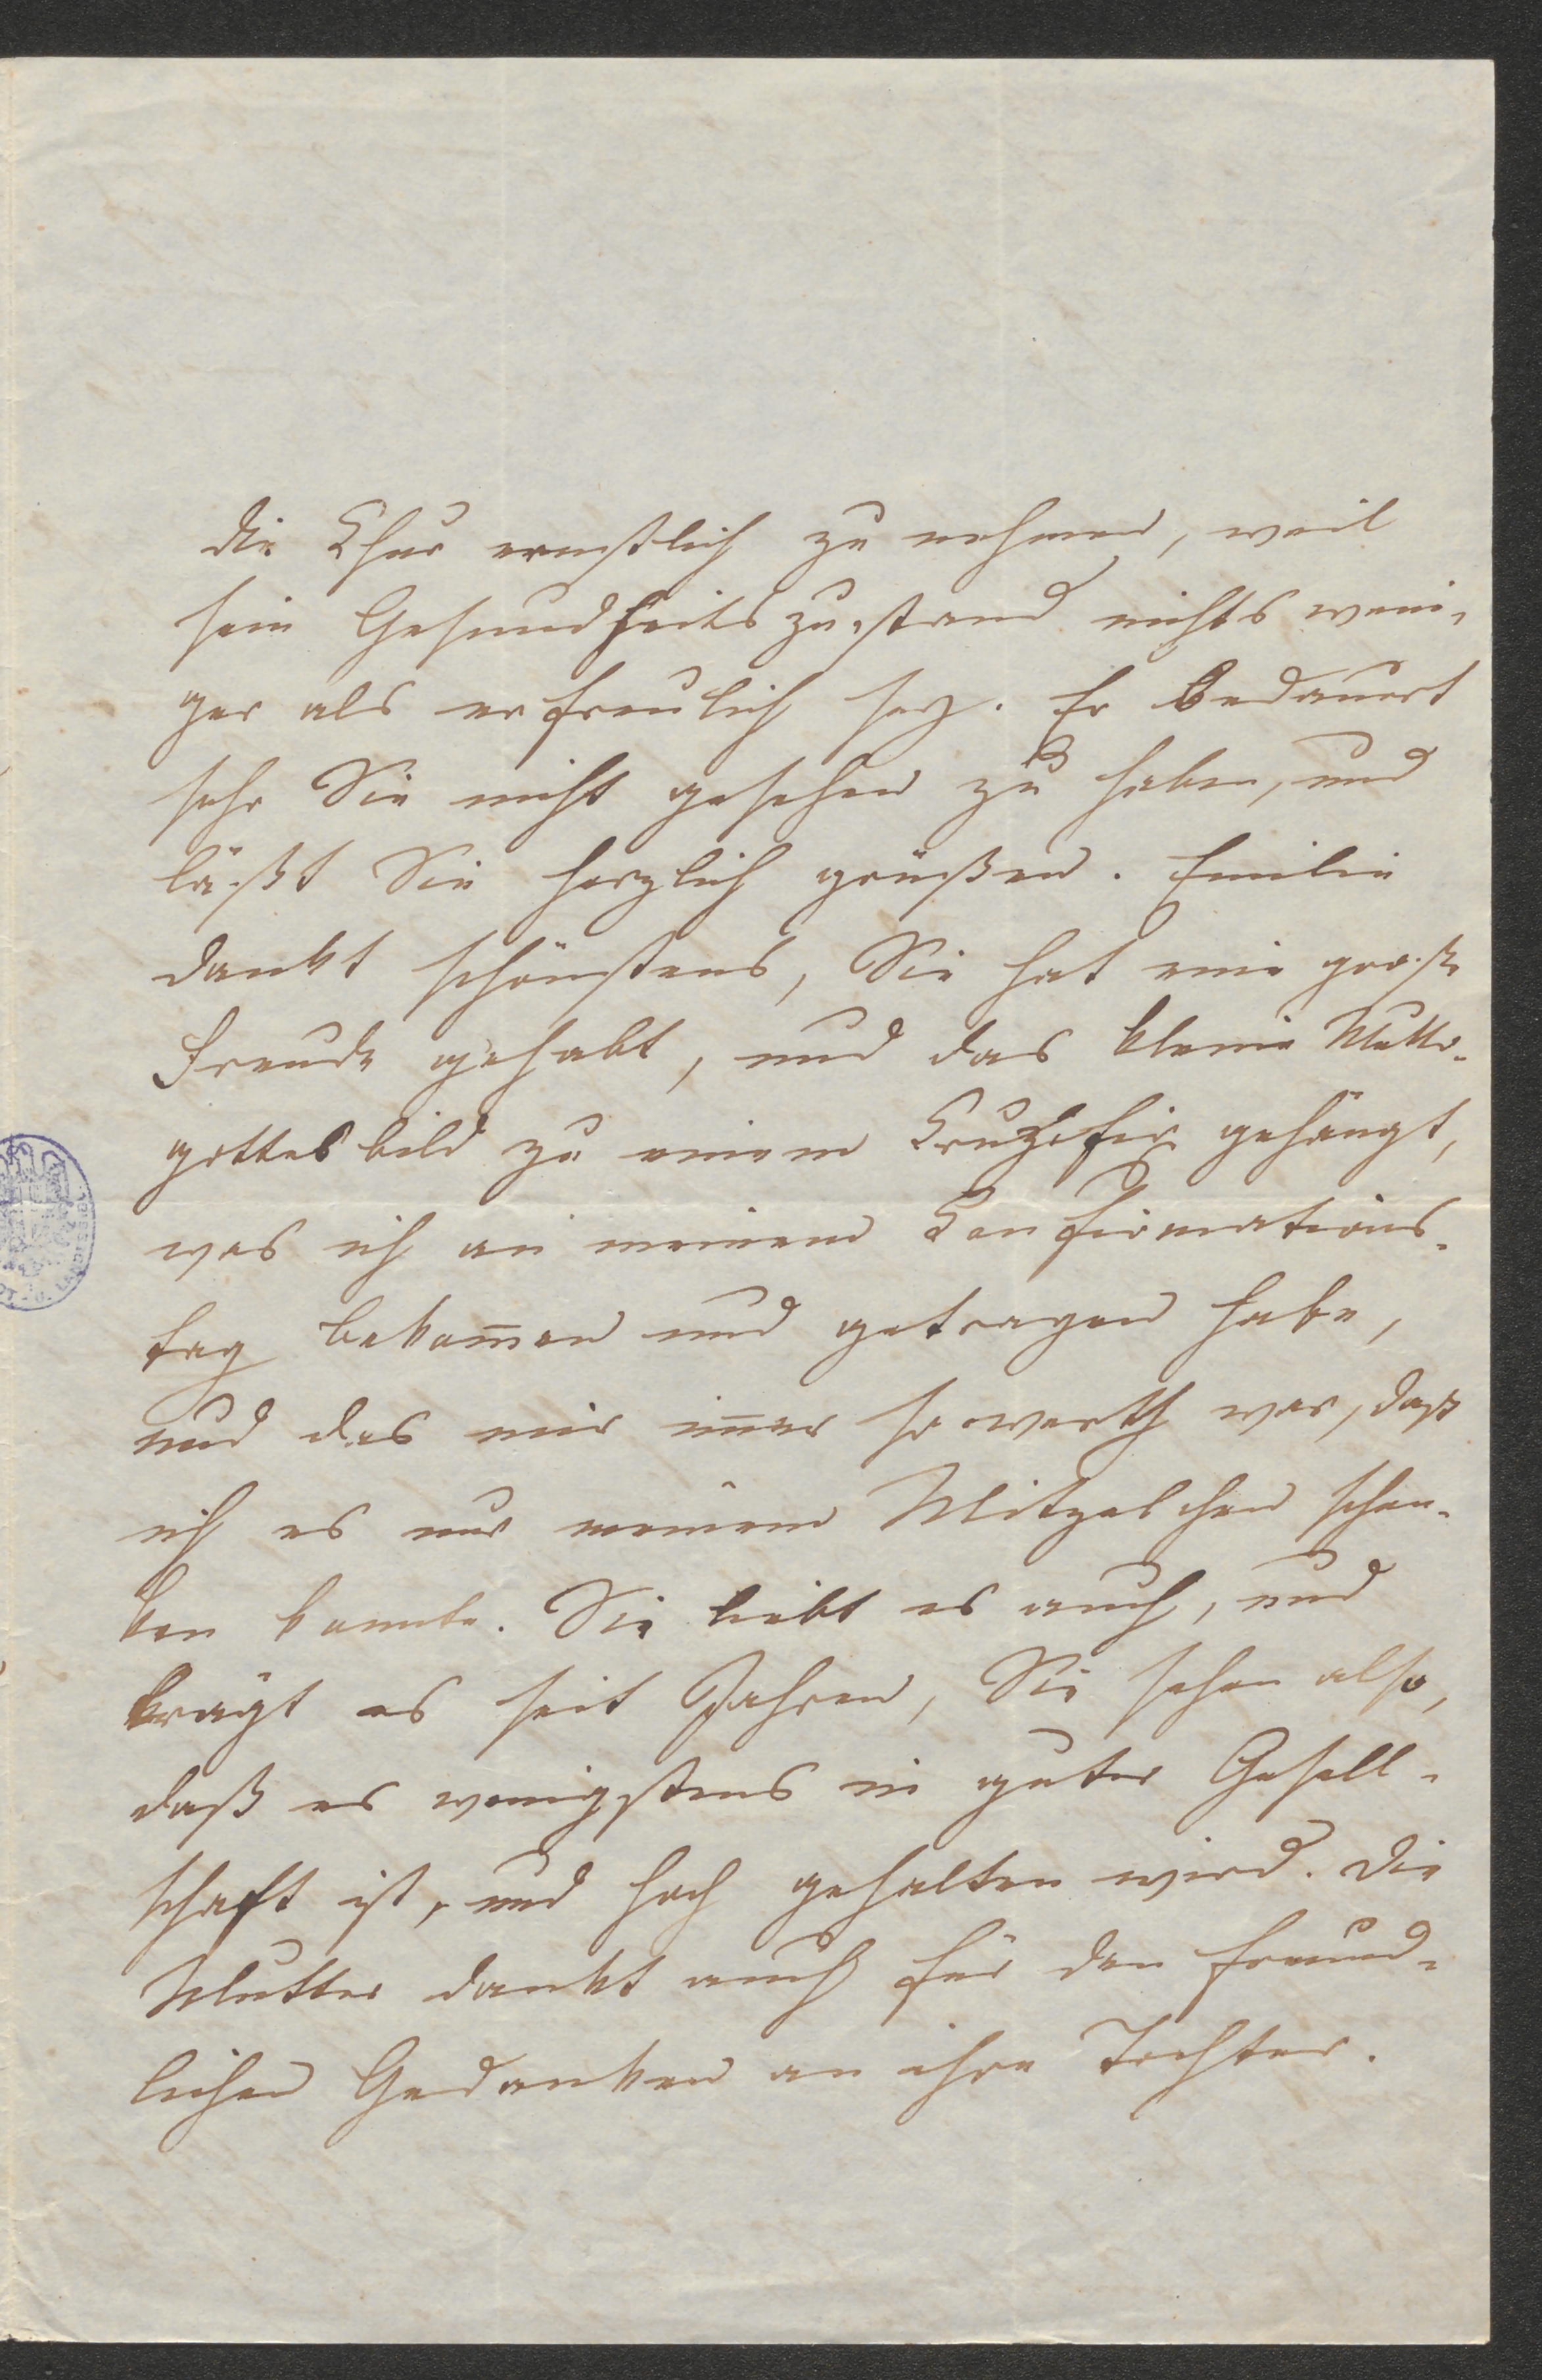 die Chur ernstlich zu nehmen, weil
sein Gesundheitszustand nichts weni-
ger als erfreulich sey. Er bedauert
sehr Sie nicht gesehen zu haben, und
läßt Sie herzlich grüßen. Emilie
dankt schönstens, Sie hat eine große
Freude gehabt, und das kleine Mutter-
gottesbild zu einem Cruzifix gehängt,
was ich an meinem Confirmations-
tag bekom̅en und getragen habe,
und das mir im̅er so werth war, daß
ich es nur meinem Mitzelchen schen-
ken konnte. Sie liebt es auch, und
trägt es seit Jahren, Sie sehen also,
daß es wenigstens in guter Gesell-
schaft ist, und hoch gehalten wird. Die
Mutter dankt auch für den freund-
lichen Gedanken an ihre Tochter.